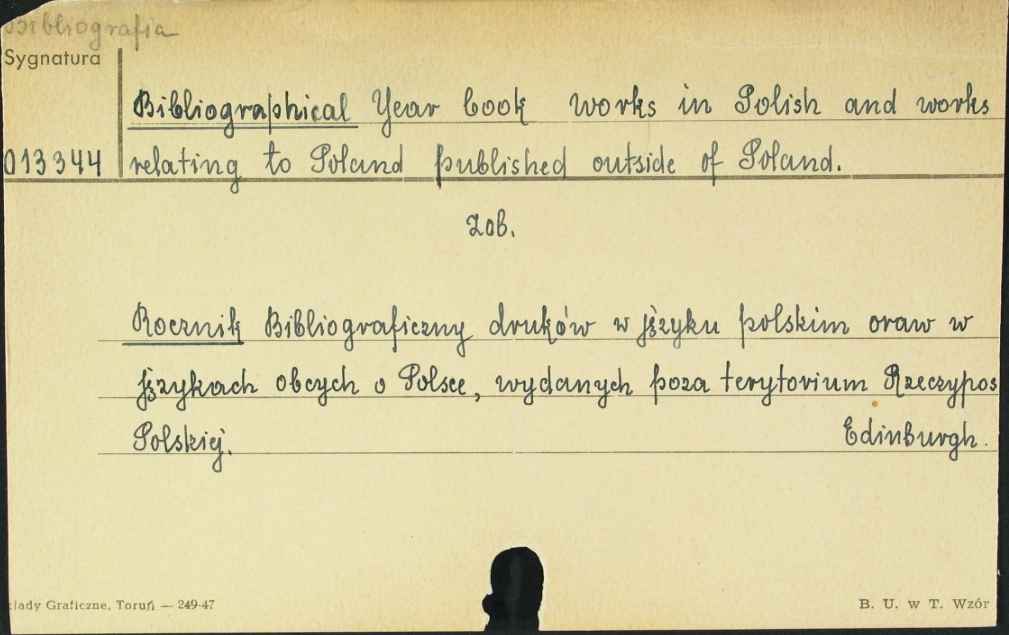 Bibliografia
Sygnatura
Bibliographical Year book works in Polish and works
013344 relating to Poland published outside of Poland.
zob.
Rocznik Bibliograficzny druków w języku polskim oraw w
językach obcych o Polsce, wydanych poza terytorium Rzeczypos
Polskiej. Edinburgh.
kłady Graficzne, Toruń — 249-47
B. U. w T. Wzór